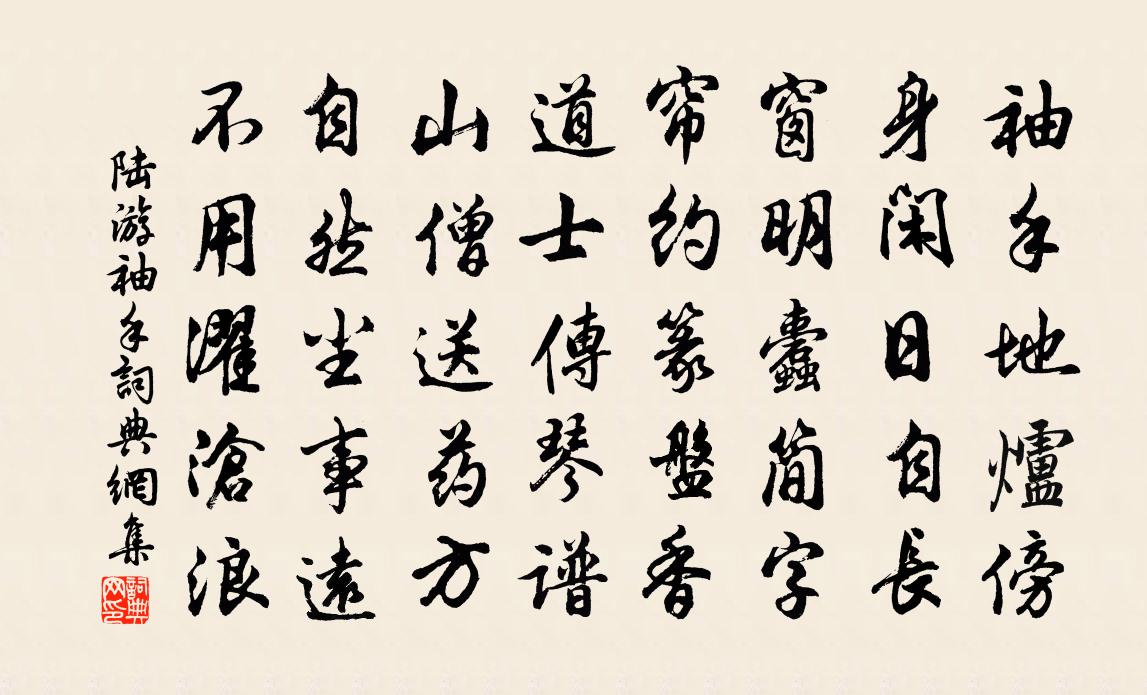 袖手地爐傍
身閑日自長
窗明蠹简字
帘約篆盤香
道士傳琴谱
山僧送药方
自然尘事遠
不用濯滄浪
陆游袖手詞典網集
詞典網印